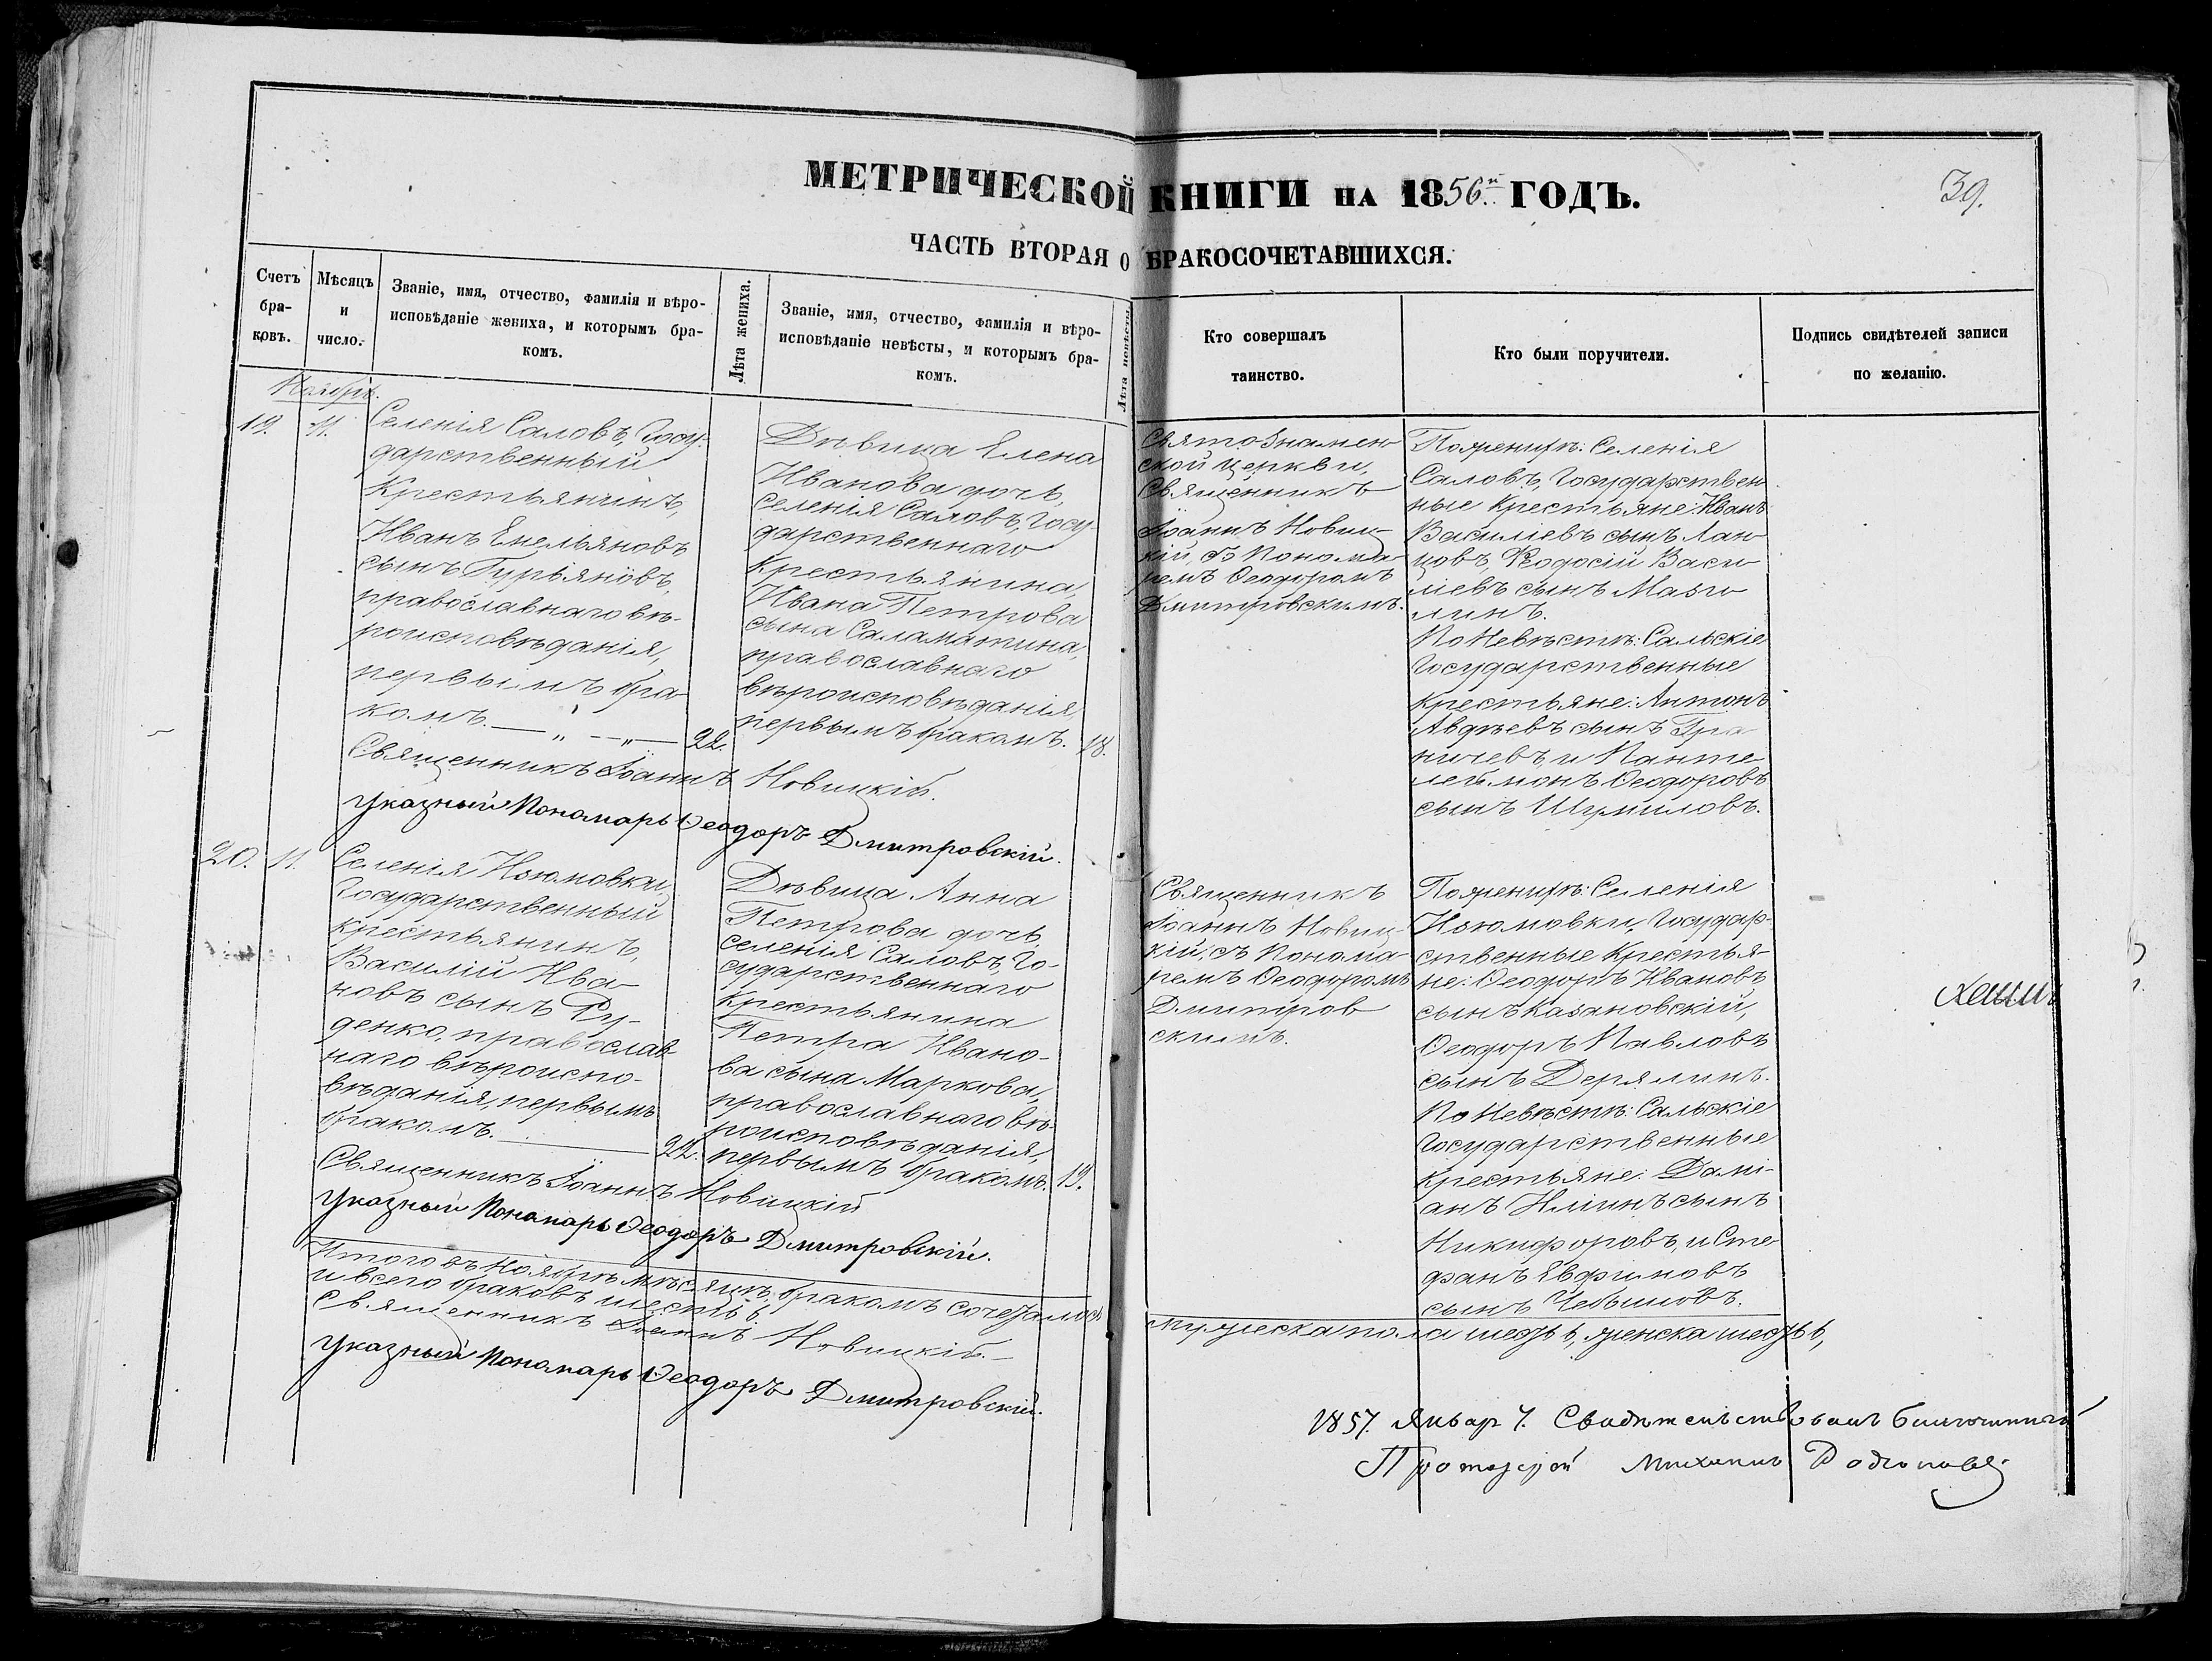 МЕТРИЧЕСКОЙ КНИГИ НА 1856.й ГОДЪ.
39.
ЧАСТЬ ВТОРАЯ О БРАКОСОЧЕТАВШИХСЯ.
Счетъ
бра-
ковъ.
Мѣсяцъ
и
число.
Званіе, имя, отчество, фамилія и вѣро-
исповѣданіе жениха, и которымъ бра-
комъ.
Лѣта жениха.
Званіе, имя, отчество, фамилія и вѣро-
исповѣданіе невѣсты, и которымъ бра-
комъ.
Лѣта невѣсты.
Кто совершалъ
таинство.
Кто были поручители.
Подпись свидѣтелей записи
по желанію.
Ноябрь.
19.
11.
Селенія Саловъ, Госу-
дарственный
Крестьянинъ,
Иванъ Емельяновъ
сынъ Гурьяновъ,
православнаго вѣ-
роисповѣданія,
первымъ бра-
комъ. — „ — „ —
22.
Дѣвица Елена
Иванова дочь,
Селенія Саловъ, Госу-
дарственнаго
Крестьянина,
Ивана Петрова
сына Саламатина,
православнаго
вѣроисповѣданія
первымъ бракомъ.
18.
Священникъ Іоаннъ Новицкій.
Указный Пономарь Ѳеодоръ Дмитровскій.
СвятоЗнамен-
ской церкви,
Священникъ
Іоаннъ Новиц-
кій, съ Понома-
ремъ Ѳеодоромъ
Дмитровскимъ.
По женихѣ: Селенія
Саловъ, Государствен-
ные Крестьяне: Иванъ
Василіевъ сынъ Лан-
цовъ, Ѳеодосій Васи-
ліевъ сынъ Мазу-
линъ.
По Невѣстѣ: Сальскіе
Государственные
Крестьяне: Антонъ
Авдѣевъ сынъ
и Панте-
леймонъ Ѳеодоровъ
сынъ Шумиловъ.
20.
11.
Селенія Изюмовки,
Государственный
Крестьянинъ,
Василій Ива-
новъ сынъ Ру-
денко, православ-
наго вѣроиспо-
вѣданія, первымъ
бракомъ. —
22.
Дѣвица Анна
Петрова дочь,
Селенія Саловъ, Го-
сударственнаго
Крестьянина
Петра Ивано-
ва сына Маркова,
православнаго вѣ-
роисповѣданія,
первымъ бракомъ.
19.
Священникъ Іоаннъ Новицкій
Указный Пономарь Ѳеодоръ Дмитровскій.
Священникъ
Іоаннъ Новиц-
кій, съ Понома-
ремъ Ѳеодоромъ
Дмитров-
скимъ.
По женихѣ: Селенія
Изюмовки, Государ-
ственные Крестья-
не: Ѳеодоръ Ивановъ
сынъ Казановскій,
Ѳеодоръ Павловъ
сынъ Дерялинъ.
По Невѣстѣ: Сальскіе
Государственные
Крестьяне: Дамі-
анъ Иліинъ сынъ
Никифоровъ, и Сте-
фанъ Евфимовъ
сынъ
Итого въ Ноябрѣ мѣсяцѣ, бракомъ сочеталось
мужеска пола шесть 6, женска шесть 6,
и всего браковъ шесть 6.
Священникъ Іоаннъ Новицкій. —
Указный Пономарь Ѳеодоръ Дмитровскій.
1857. Январ 7. Свидѣтельствовалъ Благочинный
Протоіерей Михаилъ